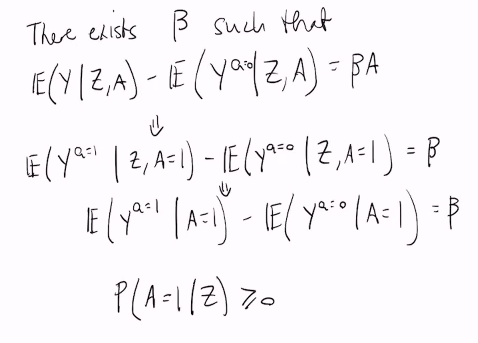 There exists β such that
𝔼(Y|Z,A) - 𝔼(Y^{a=0}|Z,A) = βA
⇓
𝔼(Y^{a=1} | Z,A=1) - 𝔼(Y^{a=0} | Z,A=1) = β
⇓
𝔼(Y^{a=1} | A=1) - 𝔼(Y^{a=0} | A=1) = β
P(A=1|Z) ⩾ 0